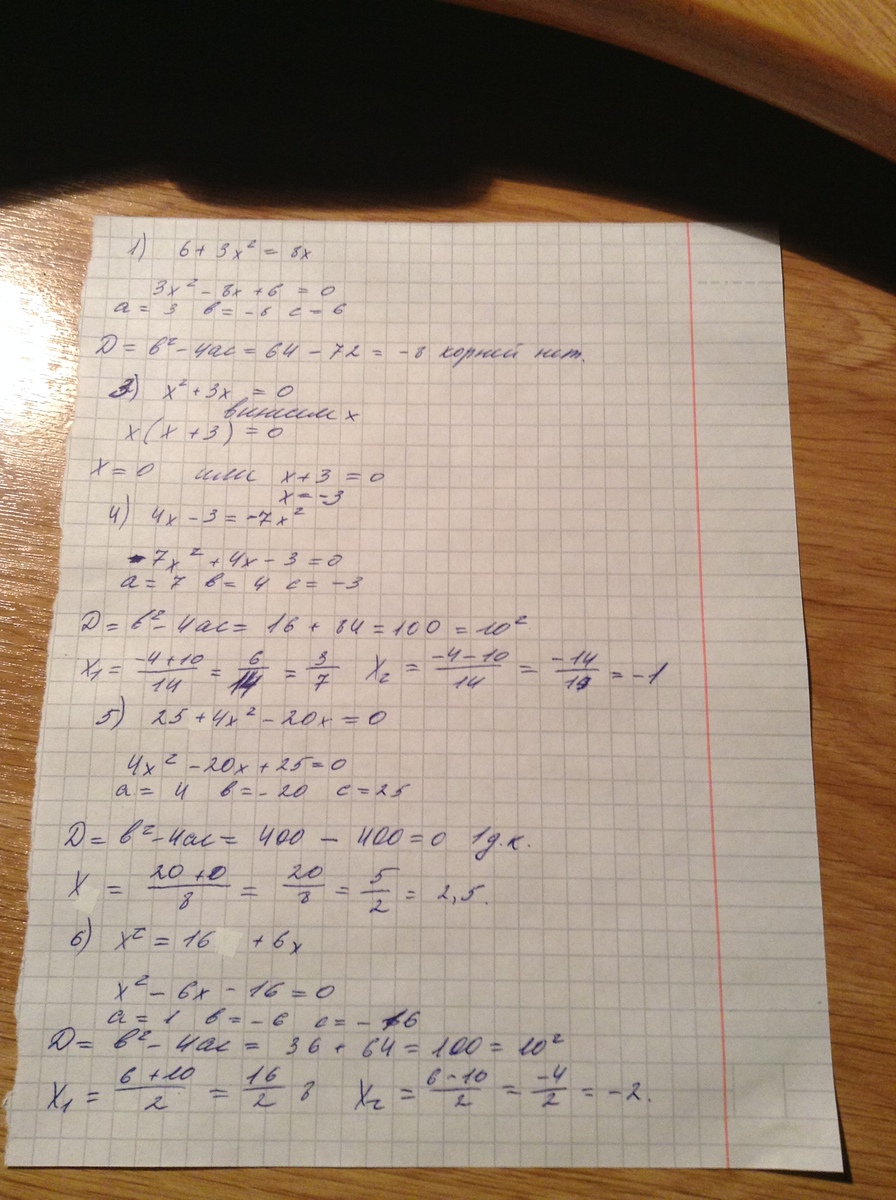 1) 6 + 3x² = 8x
3x² - 8x + 6 = 0
a = 3 в = -8 c = 6
D = в² - 4ac = 64 - 72 = -8 корней нет.
3) x² + 3x = 0
x
x(x + 3) = 0
x = 0 или x + 3 = 0
x = -3
4) 4x - 3 = -7x²
7x² + 4x - 3 = 0
a = 7 в = 4 c = -3
D = в² - 4ac = 16 + 84 = 100 = 10²
x₁ = (-4+10)/14 = 6/14 = 3/7 x₂ = (-4-10)/14 = -14/14 = -1
5) 25 + 4x² - 20x = 0
4x² - 20x + 25 = 0
a = 4 в = -20 c = 25
D = в² - 4ac = 400 - 400 = 0 1 д.к.
x = (20+0)/8 = 20/8 = 5/2 = 2,5.
6) x² = 16 + 6x
x² - 6x - 16 = 0
a = 1 в = -6 c = -16
D = в² - 4ac = 36 + 64 = 100 = 10²
x₁ = (6+10)/2 = 16/2 8 x₂ = (6-10)/2 = -4/2 = -2.